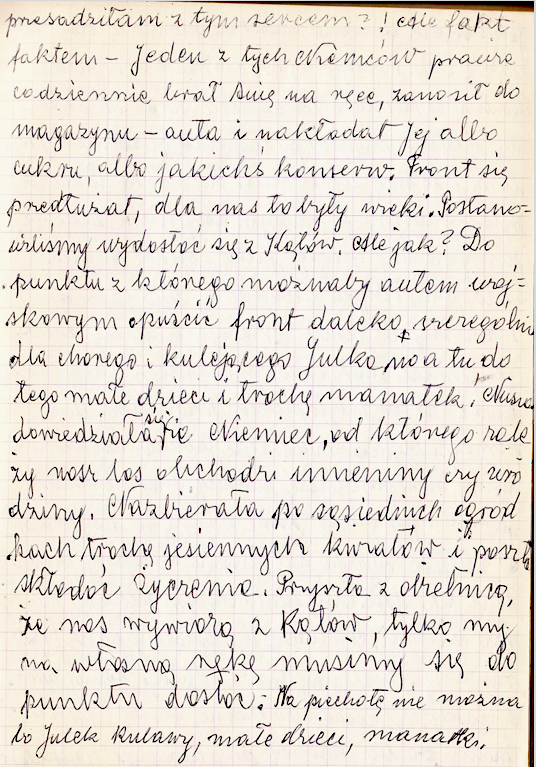 przesadziłam z tym sercem?! Ale fakt
faktem – Jeden z tych Niemców prawie
codziennie brał Anię na ręce, zanosił do
magazynu – auta i nakładał Jej albo
cukru, albo jakichś konserw. Front się
przedłużał, dla nas to były wieki. Postano=
wiliśmy wydostać się z Kątów. Ale jak? Do
punktu z którego możnaby autem woj=
skowym opuścić front daleko, szczególnie
dla chorego i kulejącego Julka, no a tu do
tego małe dzieci i trochę manatek!
dowiedziała się Niemiec, od którego zale
ży nasz los obchodzi imieniny czy uro
dziny. Nazbierała po sąsiednich ogród
kach trochę jesiennych kwiatów i poszła
składać życzenia. Przyszła z obietnicą,
że nas wywiozą z Kątów, tylko my
na własną rękę musimy się do
punktu dostać. Na piechotę nie można
bo Julek kulawy, małe dzieci, manatki.